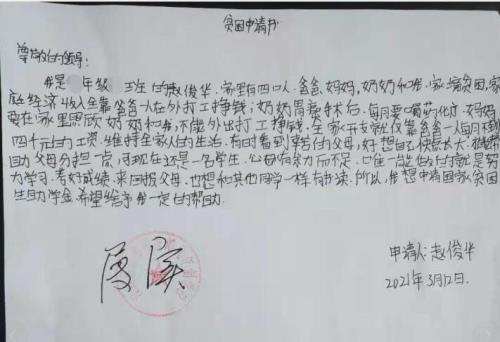 贫困申请书
尊敬的领导:
我是 年级 班生的赵俊华.家里有四口人.爸爸,妈妈,奶奶和我.家境贫困,家
庭经济收入全靠爸爸一人在外打工挣钱;奶奶胃癌术后.每月要喝药化疗.妈妈
要在家里照顾奶奶和我,不能外出打工挣钱.全家开支就仅靠爸爸一人每月
四千元的工资.维持全家人的生活.有时看到辛苦的父母,好想自己快点长大.能帮
助父母分担一点,可现在还是一名学生.心有余而力不足.唯一能做的就是努
力学习.考好成绩.来回报父母.也想和其他同学一样有书读.所以,我想申请国家贫困
生助学金.希望给予我一定的帮助.
属实
申请人:赵俊华
2021年3月12日.